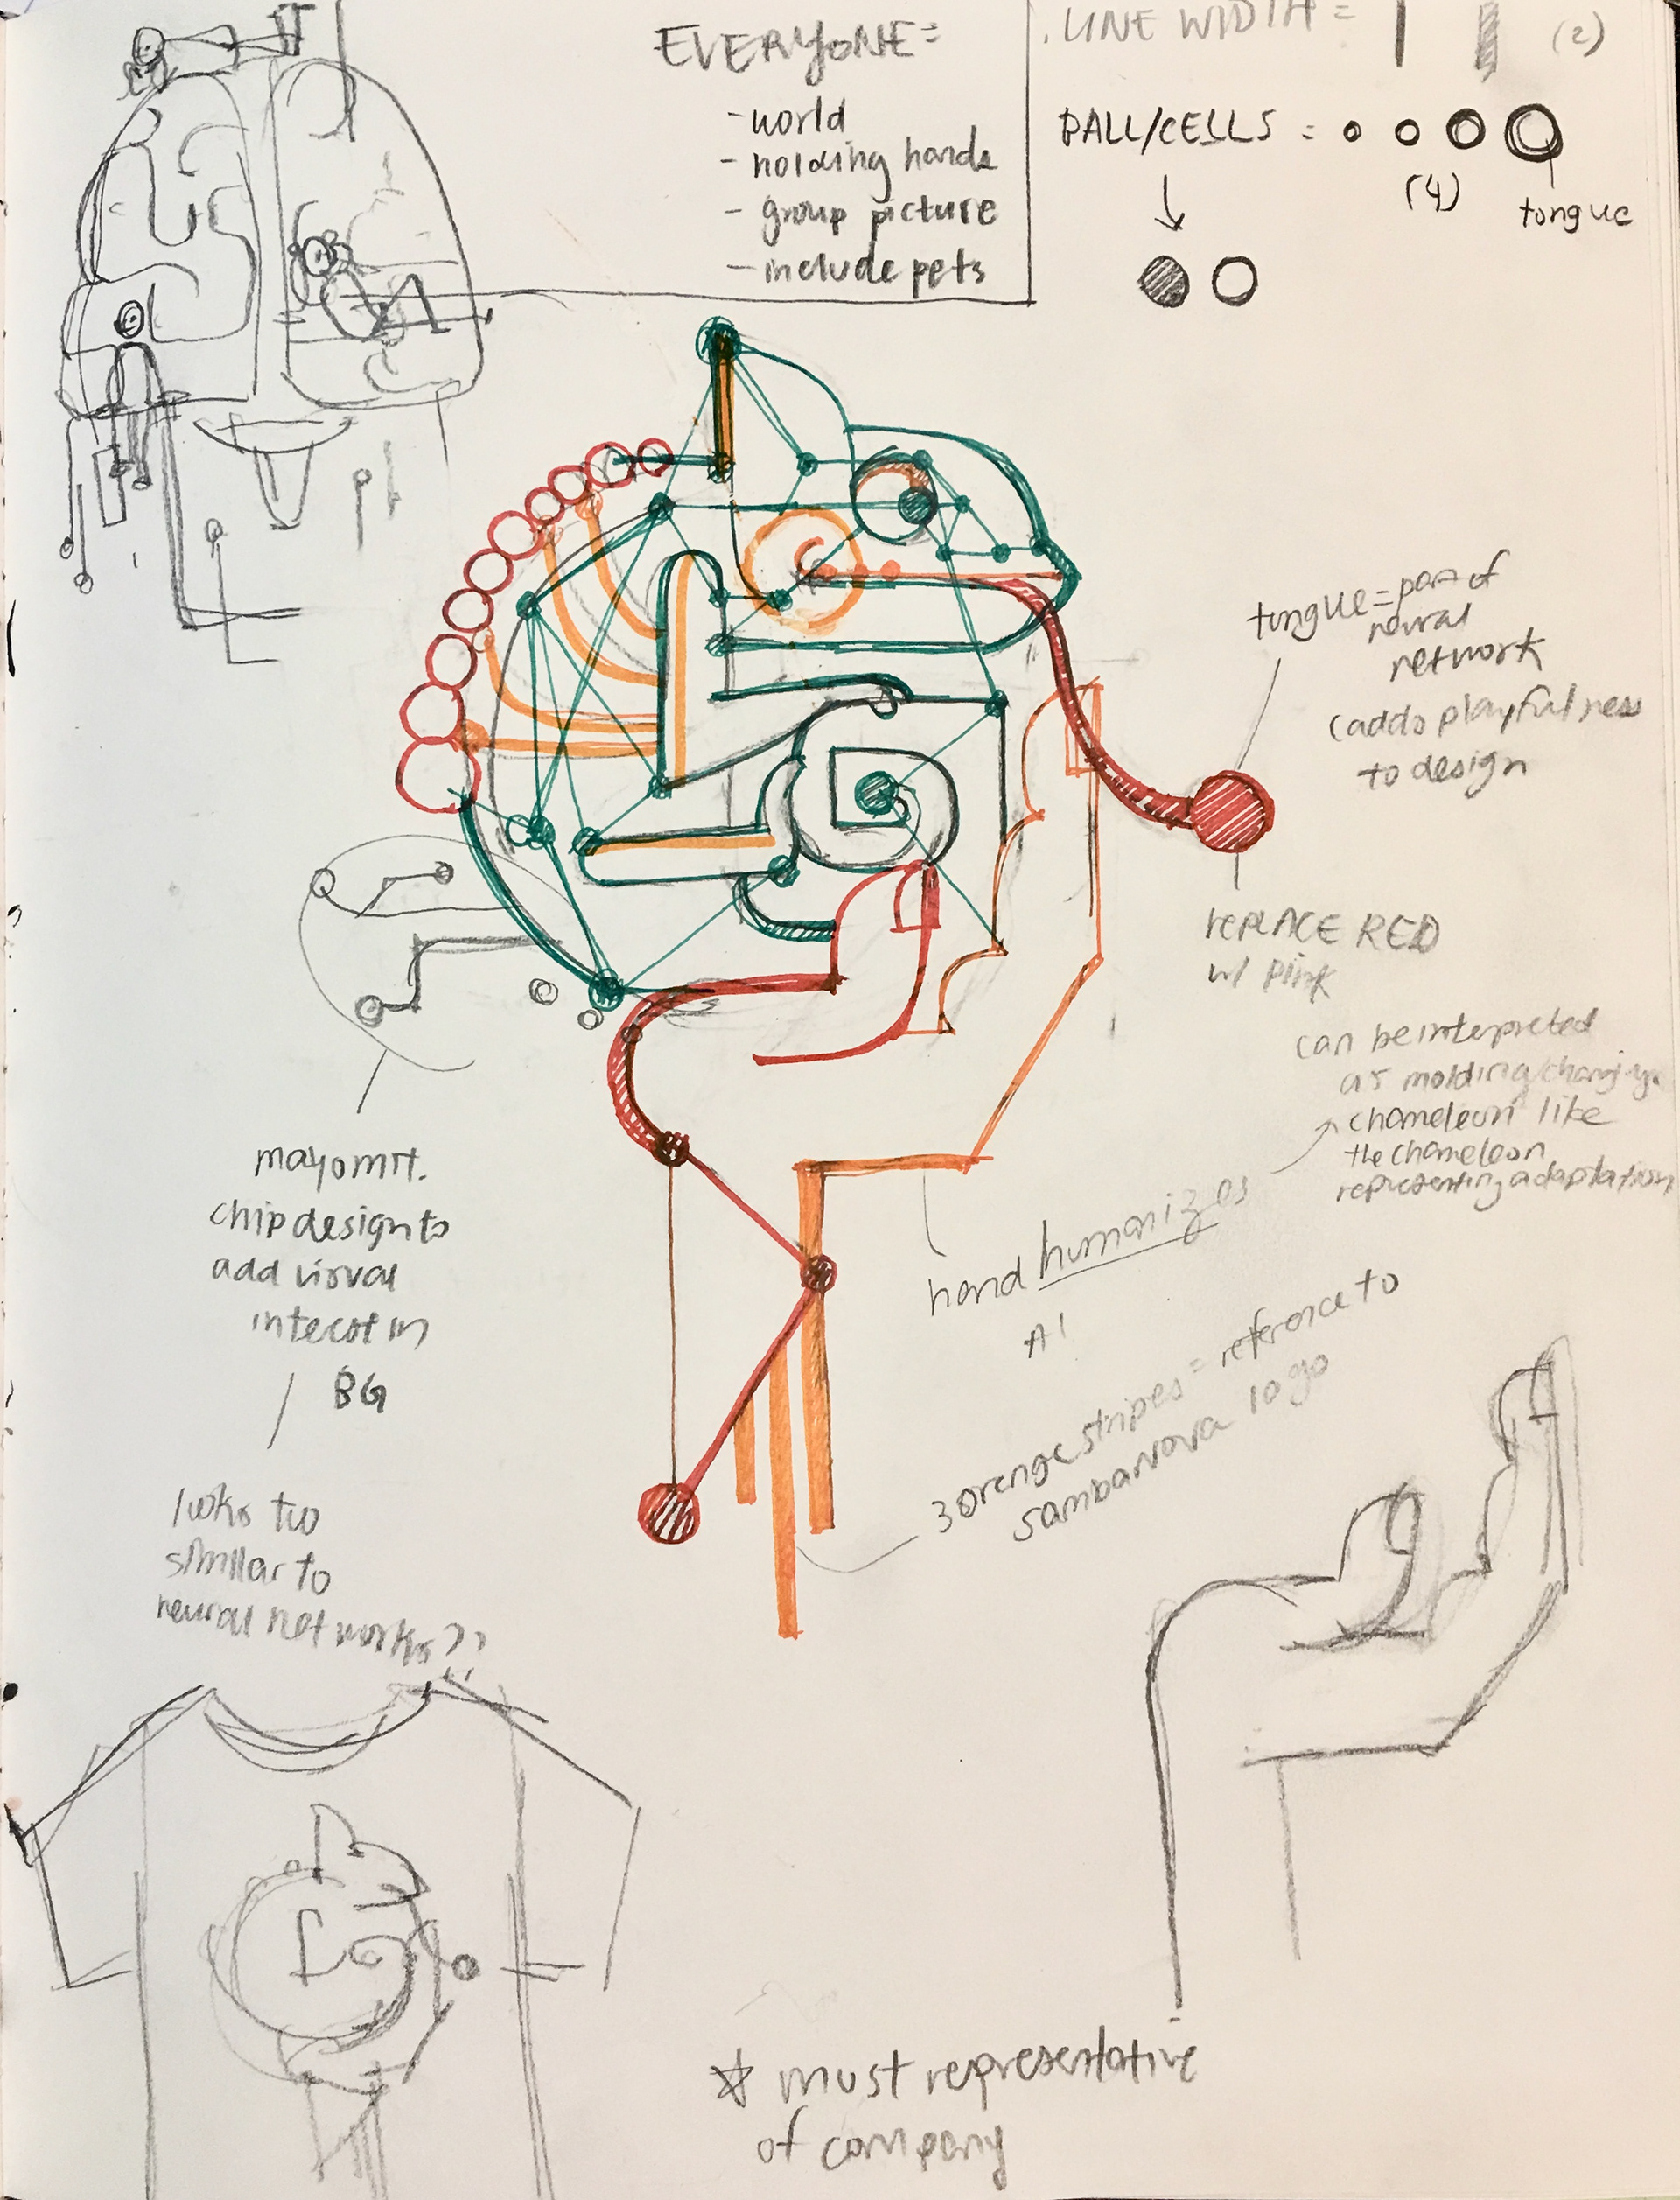 EVERYONE=
- world
- holding hands
- group picture
- include pets
. LINE WIDTH =
(2)
BALL/CELLS =
(4)
tongue
tongue = part of
neural
network
(adds playfulness
to design
REPLACE RED
w/ pink
can be interpreted
as molding/changing
chameleon like
the chameleon
representing adaptation
hand humanizes
AI
3 orange stripes = reference to
sambanova logo
may omit.
chip design to
add visual
interest in
BG
looks too
similar to
neural networks??
☆ must representative
of company